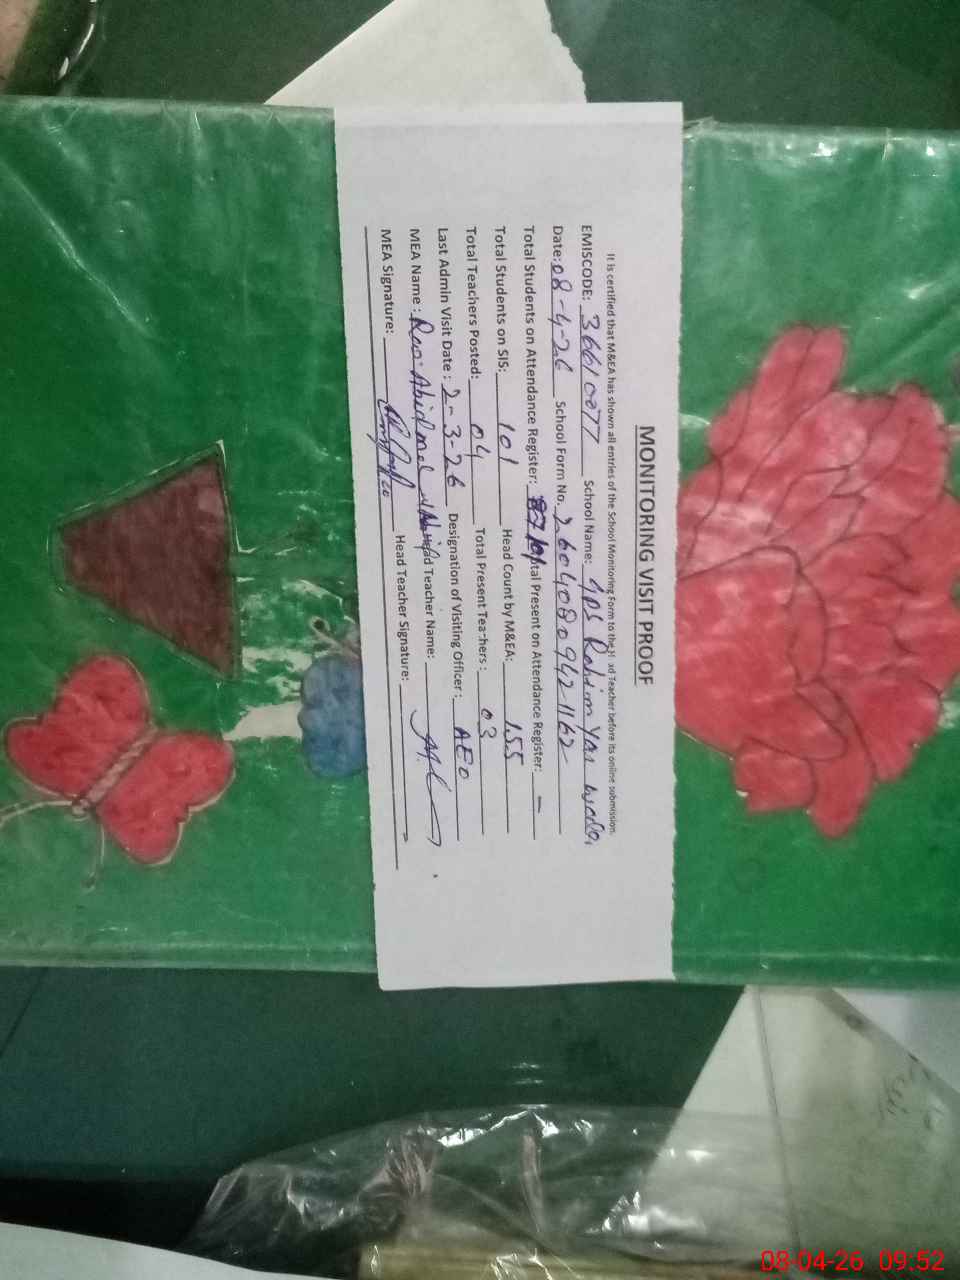 MONITORING VISIT PROOF
It is certified that M&EA has shown all entries of the School Monitoring Form to the H ad Teacher before its online submission.
EMISCODE: 36610077 School Name: GPS Rahim Yar
Date: 08-4-26 School Form No. 26040809421162
Total Students on Attendance Register: 101 tal Present on Attendance Register: -
Total Students on SIS: 101 Head Count by M&EA: 155
Total Teachers Posted: 04 Total Present Teachers: 03
Last Admin Visit Date: 2-3-26 Designation of Visiting Officer: AEO
MEA Name: Rao Abid ad Teacher Name:
MEA Signature: Head Teacher Signature:
08-04-26 09:52